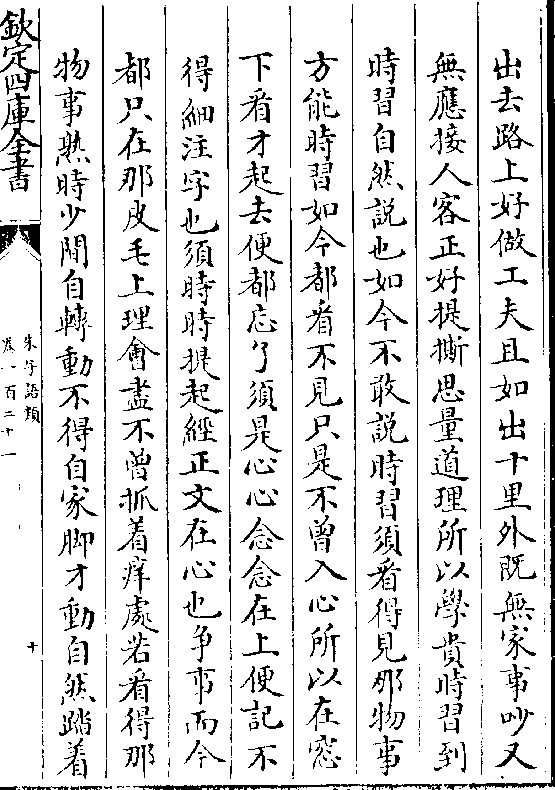 出去路上好做工夫且如出十里外既無家事吵又
無應接人客正好提撕思量道理所以學貴時習到
時習自然説也如今不敢説時習須看得見那物事
方能時習如今都看不見只是不曾入心所以在窓
下看才起去便都忘了須是心心念念在上便記不
得細注字也須時時提起經正文在心也争事而今
都只在那皮毛上理會盡不曾抓着痒處若看得那
物事熟時少間自轉動不得自家脚才動自然踏着
欽定四庫全書
朱子語類
卷一百二十一
十